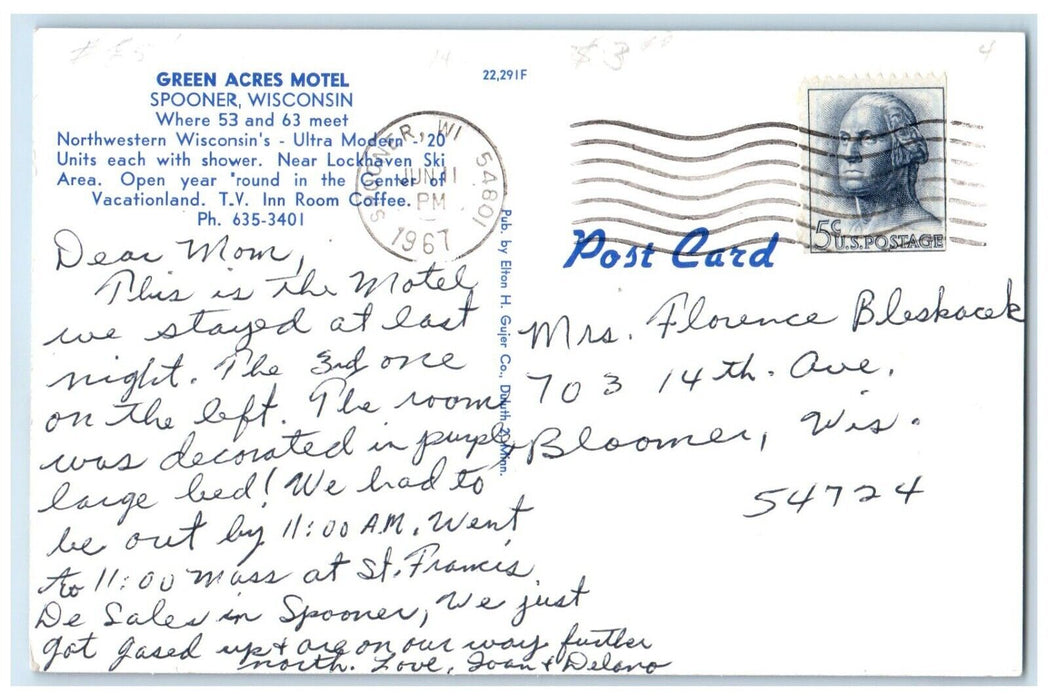 GREEN ACRES MOTEL
SPOONER, WISCONSIN
Where 53 and 63 meet
Northwestern Wisconsin's - Ultra Modern - 20
Units each with shower. Near Lockhaven Ski
Area. Open year 'round in the Center of
Vacationland. T.V. Inn Room Coffee.
Ph. 635-3401
22,291F
SPOONER, WI 54801
JUN 11
PM
1967
5¢ U.S. POSTAGE
Post Card
Pub. by Elton H. Gujer Co., Duluth 2, Minn.
Dear Mom,
This is the Motel
we stayed at last
night. The 3rd one
on the left. The room
was decorated in purple &
large bed! We had to
be out by 11:00 A.M. Went
to 11:00 Mass at St. Francis
De Sales in Spooner, We just
got gased up & are on our way further
north. Love, Joan & Delano
Mrs. Florence Bleskacek
703 14th. Ave.
Bloomer, Wis.
54724